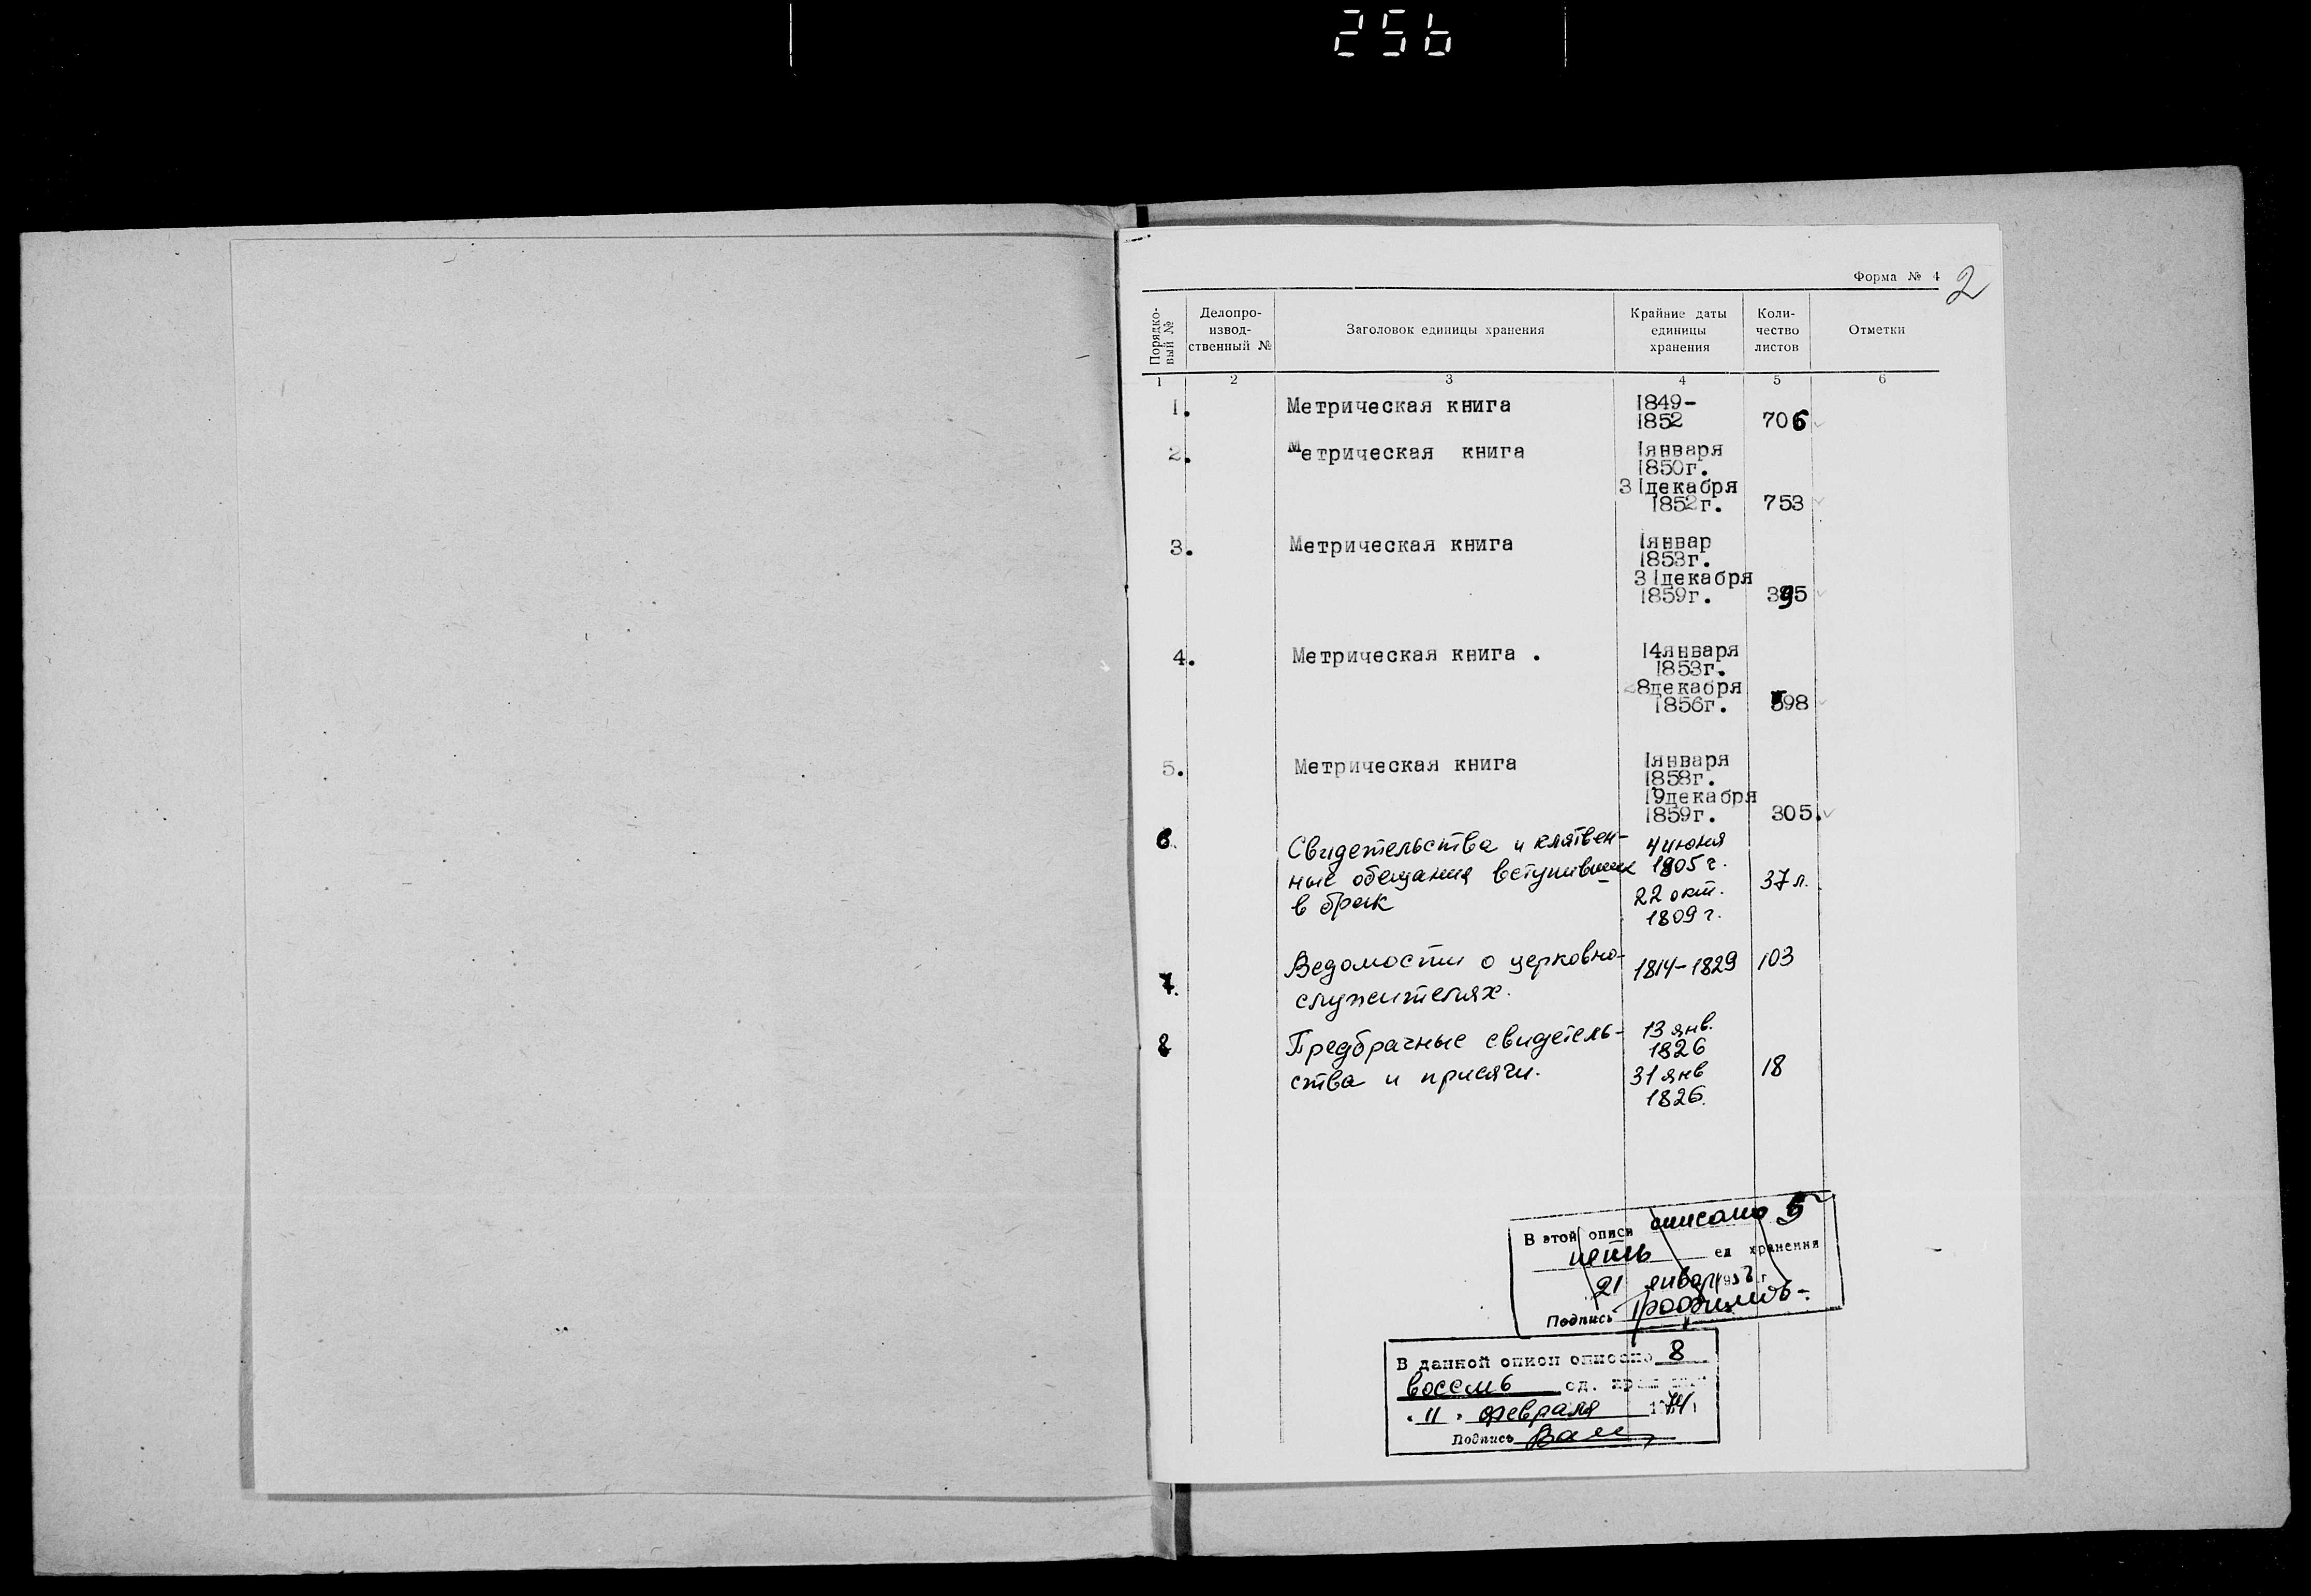 256
Форма № 4
2
Порядко-
вый №
Делопро-
извод-
ственный №
Заголовок единицы хранения
Крайние даты
единицы
хранения
Коли-
чество
листов
Отметки
1 2 3 4 5 6
1. Метрическая книга 1849-
1852 706
2. Метрическая книга 1января
1850г.
31декабря
1852г. 753
3. Метрическая книга 1январ
1853г.
31декабря
1859г. 395
4. Метрическая книга . 14января
1853г.
28декабря
1856г. 98
5. Метрическая книга 1января
1858г.
19декабря
1859г. 305.
6. Свидетельства и клятвен- 4 июня
ные обещания вступивших 1805 г.
в брак 22 окт. 37 л.
1809 г.
7. Ведомости о церковно- 1814-1829 103
служителях.
8 Предбрачные свидетель- 13 янв.
1826
ства и присяги. 31 янв 18
1826.
В этой описи описано 5
пять ед хранения
21 января 195 г
Подпись
В данной описи описано 8
восемь ед.
"11" февраля
Подпись